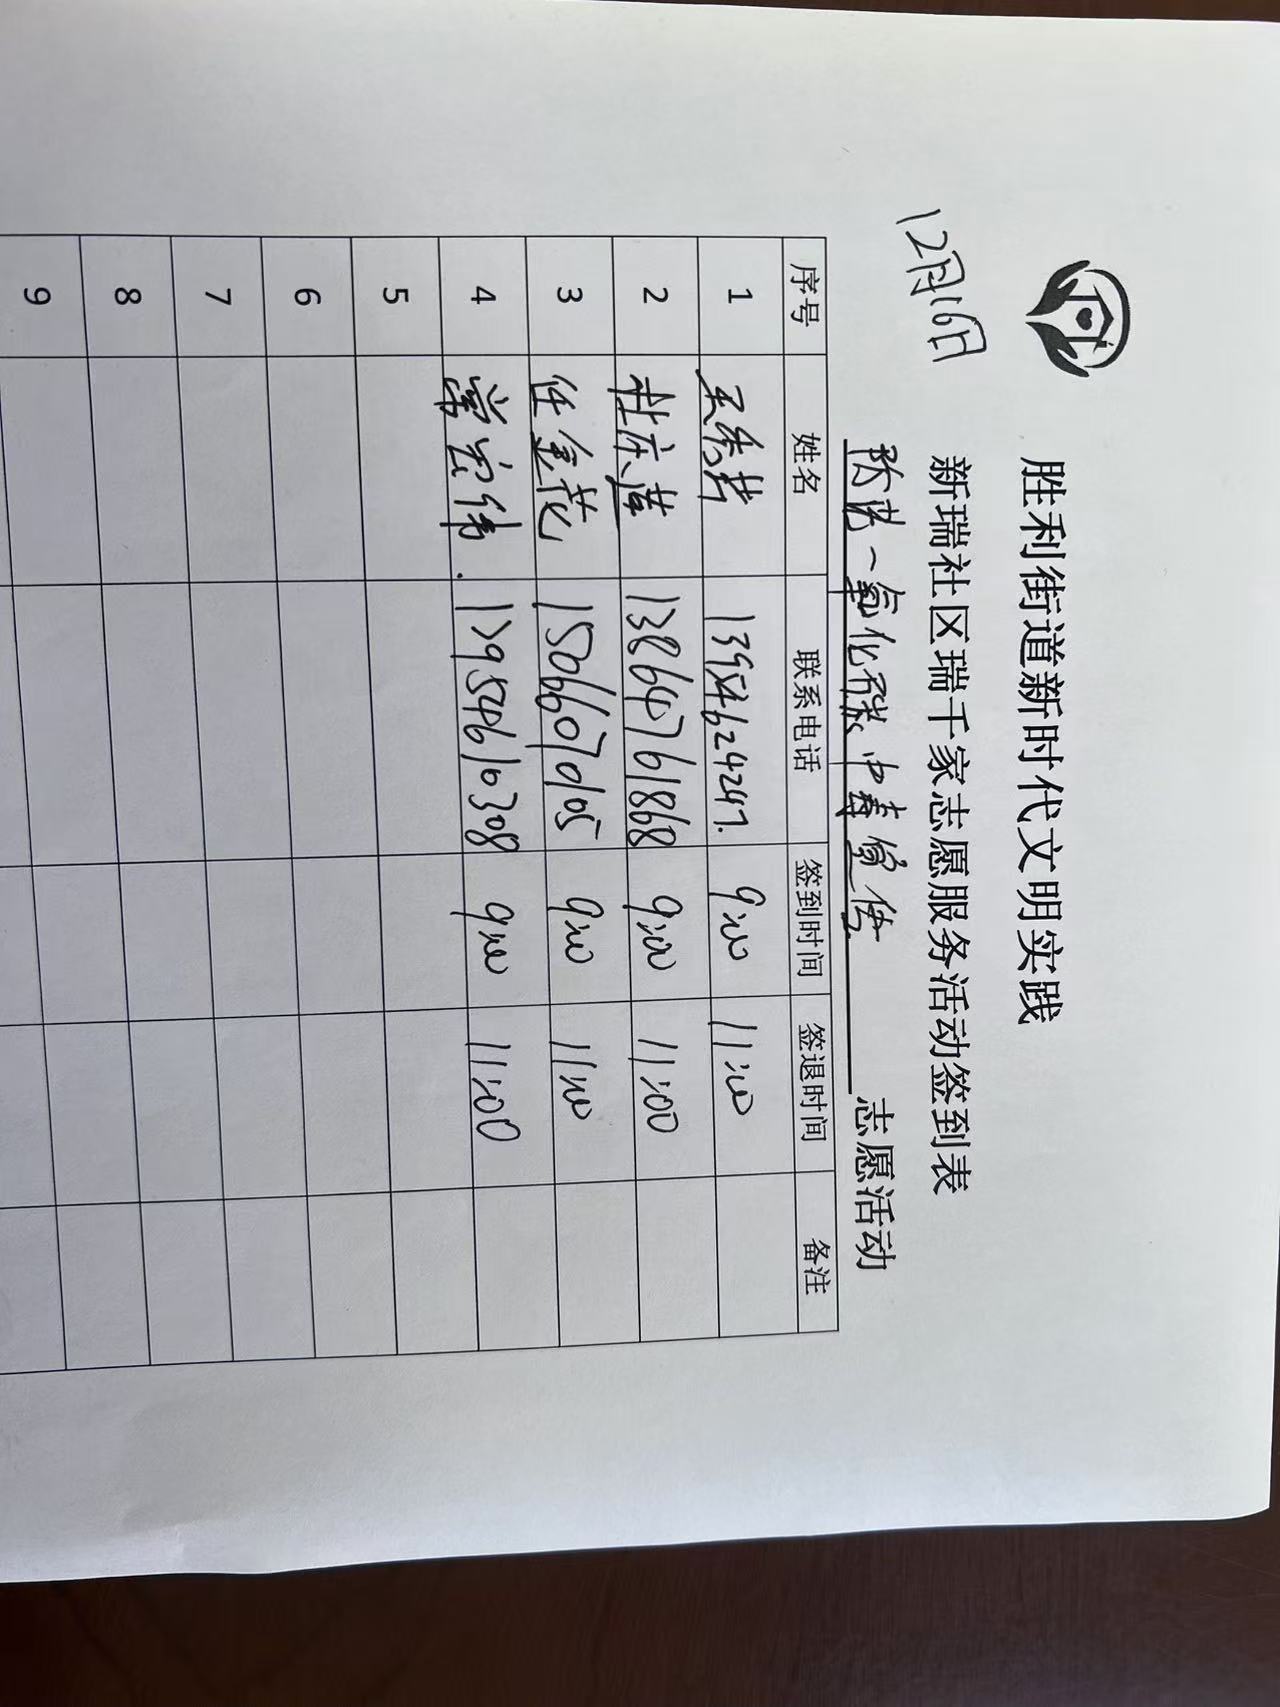 胜利街道新时代文明实践
新瑞社区瑞千家志愿服务活动签到表
12月16日
防范一氧化碳中毒宣传 志愿活动
序号 姓名 联系电话 签到时间 签退时间 备注
1 13954624247. 9:00 11:00
2 杜庆莲 13864761868 9:00 11:00
3 任金花 15066070105 9:00 11:00
4 常宏伟. 13954610308 9:00 11:00
5
6
7
8
9